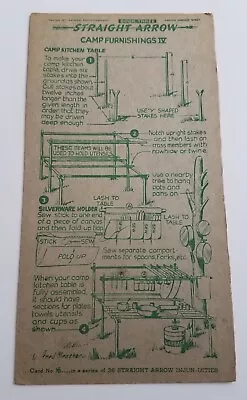 BOOK THREE
STRAIGHT ARROW
CAMP FURNISHINGS IV
CAMP KITCHEN TABLE
To make your
camp kitchen
table, drive six
stakes into the
ground as shown.
Cut stakes about
twelve inches
longer than the
given length in
order that they
may be driven
deep enough
1
USE "Y" SHAPED
STAKES HERE
2
Notch upright stakes
and then lash on
cross members with
rawhide or twine.
THESE TEAMS WILL BE
USED TO HOLD UTENSILS
Use a nearby
tree to hang
pots and
pans on
LASH TO
TABLE
3
SILVERWARE HOLDER
Sew stick to one end
of a piece of canvas
and then fold up
LASH TO
TABLE
STICK
SEW
FOLD UP
Sew separate compart-
ments for spoons, forks, etc.
When your camp
kitchen table is
fully assembled,
it should have
sections for plates
towels, utensils
and cups as
shown
4
Fred Meagher
Card No.
in a series of 36 STRAIGHT ARROW INJUN-UITIES